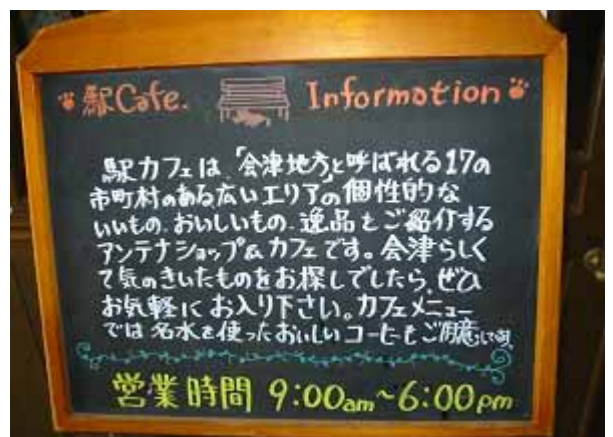 駅Cafe. Information
駅カフェは、「会津地方」と呼ばれる17の
市町村のある広いエリアの個性的な
いいもの、おいしいもの、逸品をご紹介する
アンテナショップ&カフェです。会津らしく
て気のきいたものをお探しでしたら、ぜひ
お気軽にお入り下さい。カフェメニュー
では名水を使ったおいしいコーヒーもご用意しています。
営業時間 9:00am~6:00pm